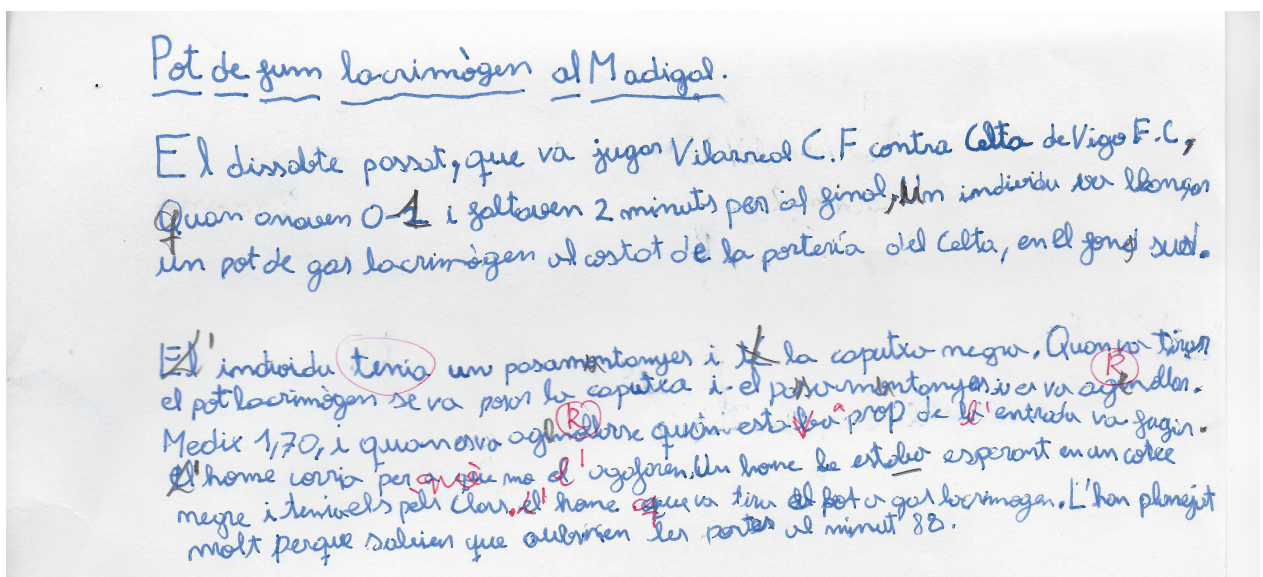 Pot de fum lacrimògen al Madigal.
El dissabte passat, que va jugar Vilarreal C.F contra Celta de Vigo F.C,
quan anaven 0-1 i faltaven 2 minuts per al final, un individu va llançar
un pot de gas lacrimògen al costat de la portería del Celta, en el fons sud.
L'individu tenia un pasamontanyes i la caputxa negra. Quan va tirar
el pot lacrimògen se va posar la caputxa i el pasamontanyes i es va agenollar.
Medix 1,70, i quan esva quan estava a prop de l'entrada va fugir.
L'home corria perquè no l'agafaren. Un home le estaba esperant en un cotxe
negre i tenia els pels clars. l'home que va tira el pot a gas lacrimogen. L'han planejat
molt perque sabien que aubririen les portes al minut 88.